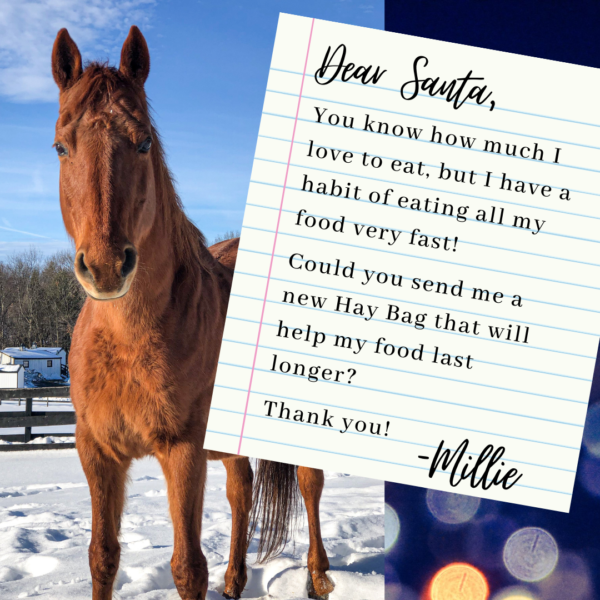 Dear Santa,
You know how much I
love to eat, but I have a
habit of eating all my
food very fast!
Could you send me a
new Hay Bag that will
help my food last
longer?
Thank you!
-Millie